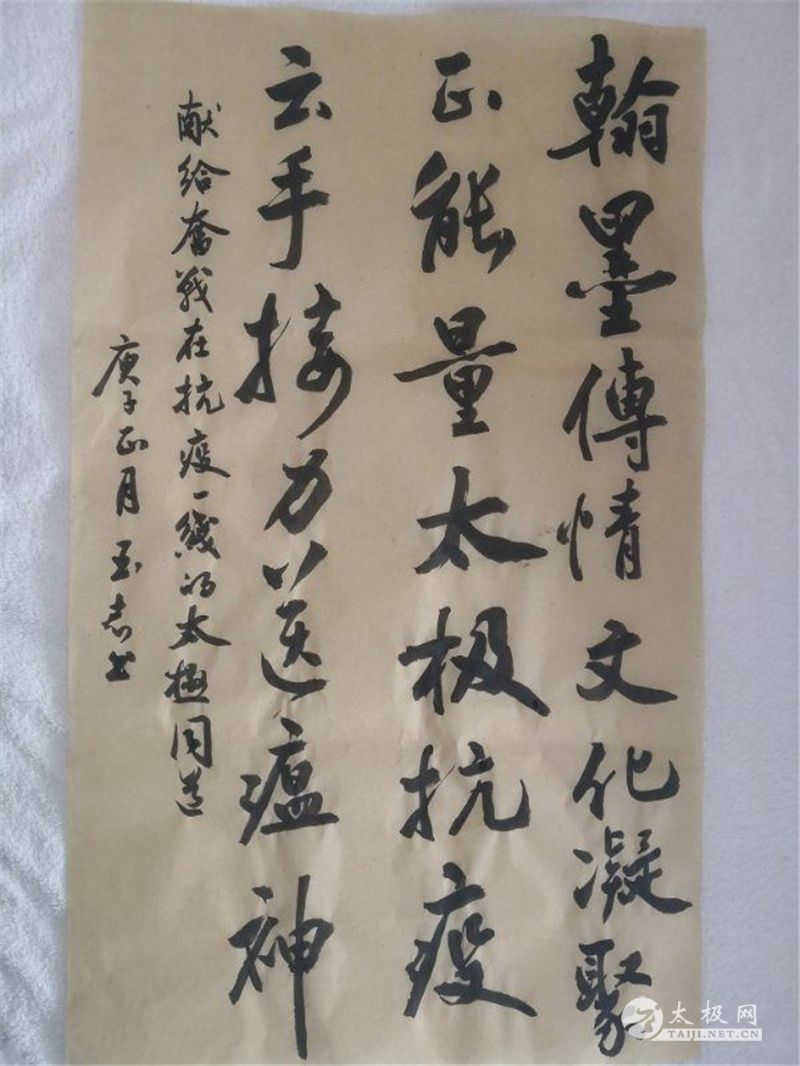 翰墨傳情文化凝聚
正能量太极抗疫
云手接力送瘟神
献给奮战在抗疫一线的太極同道
庚子正月玉志书
太极网
TAIJI.NET.CN